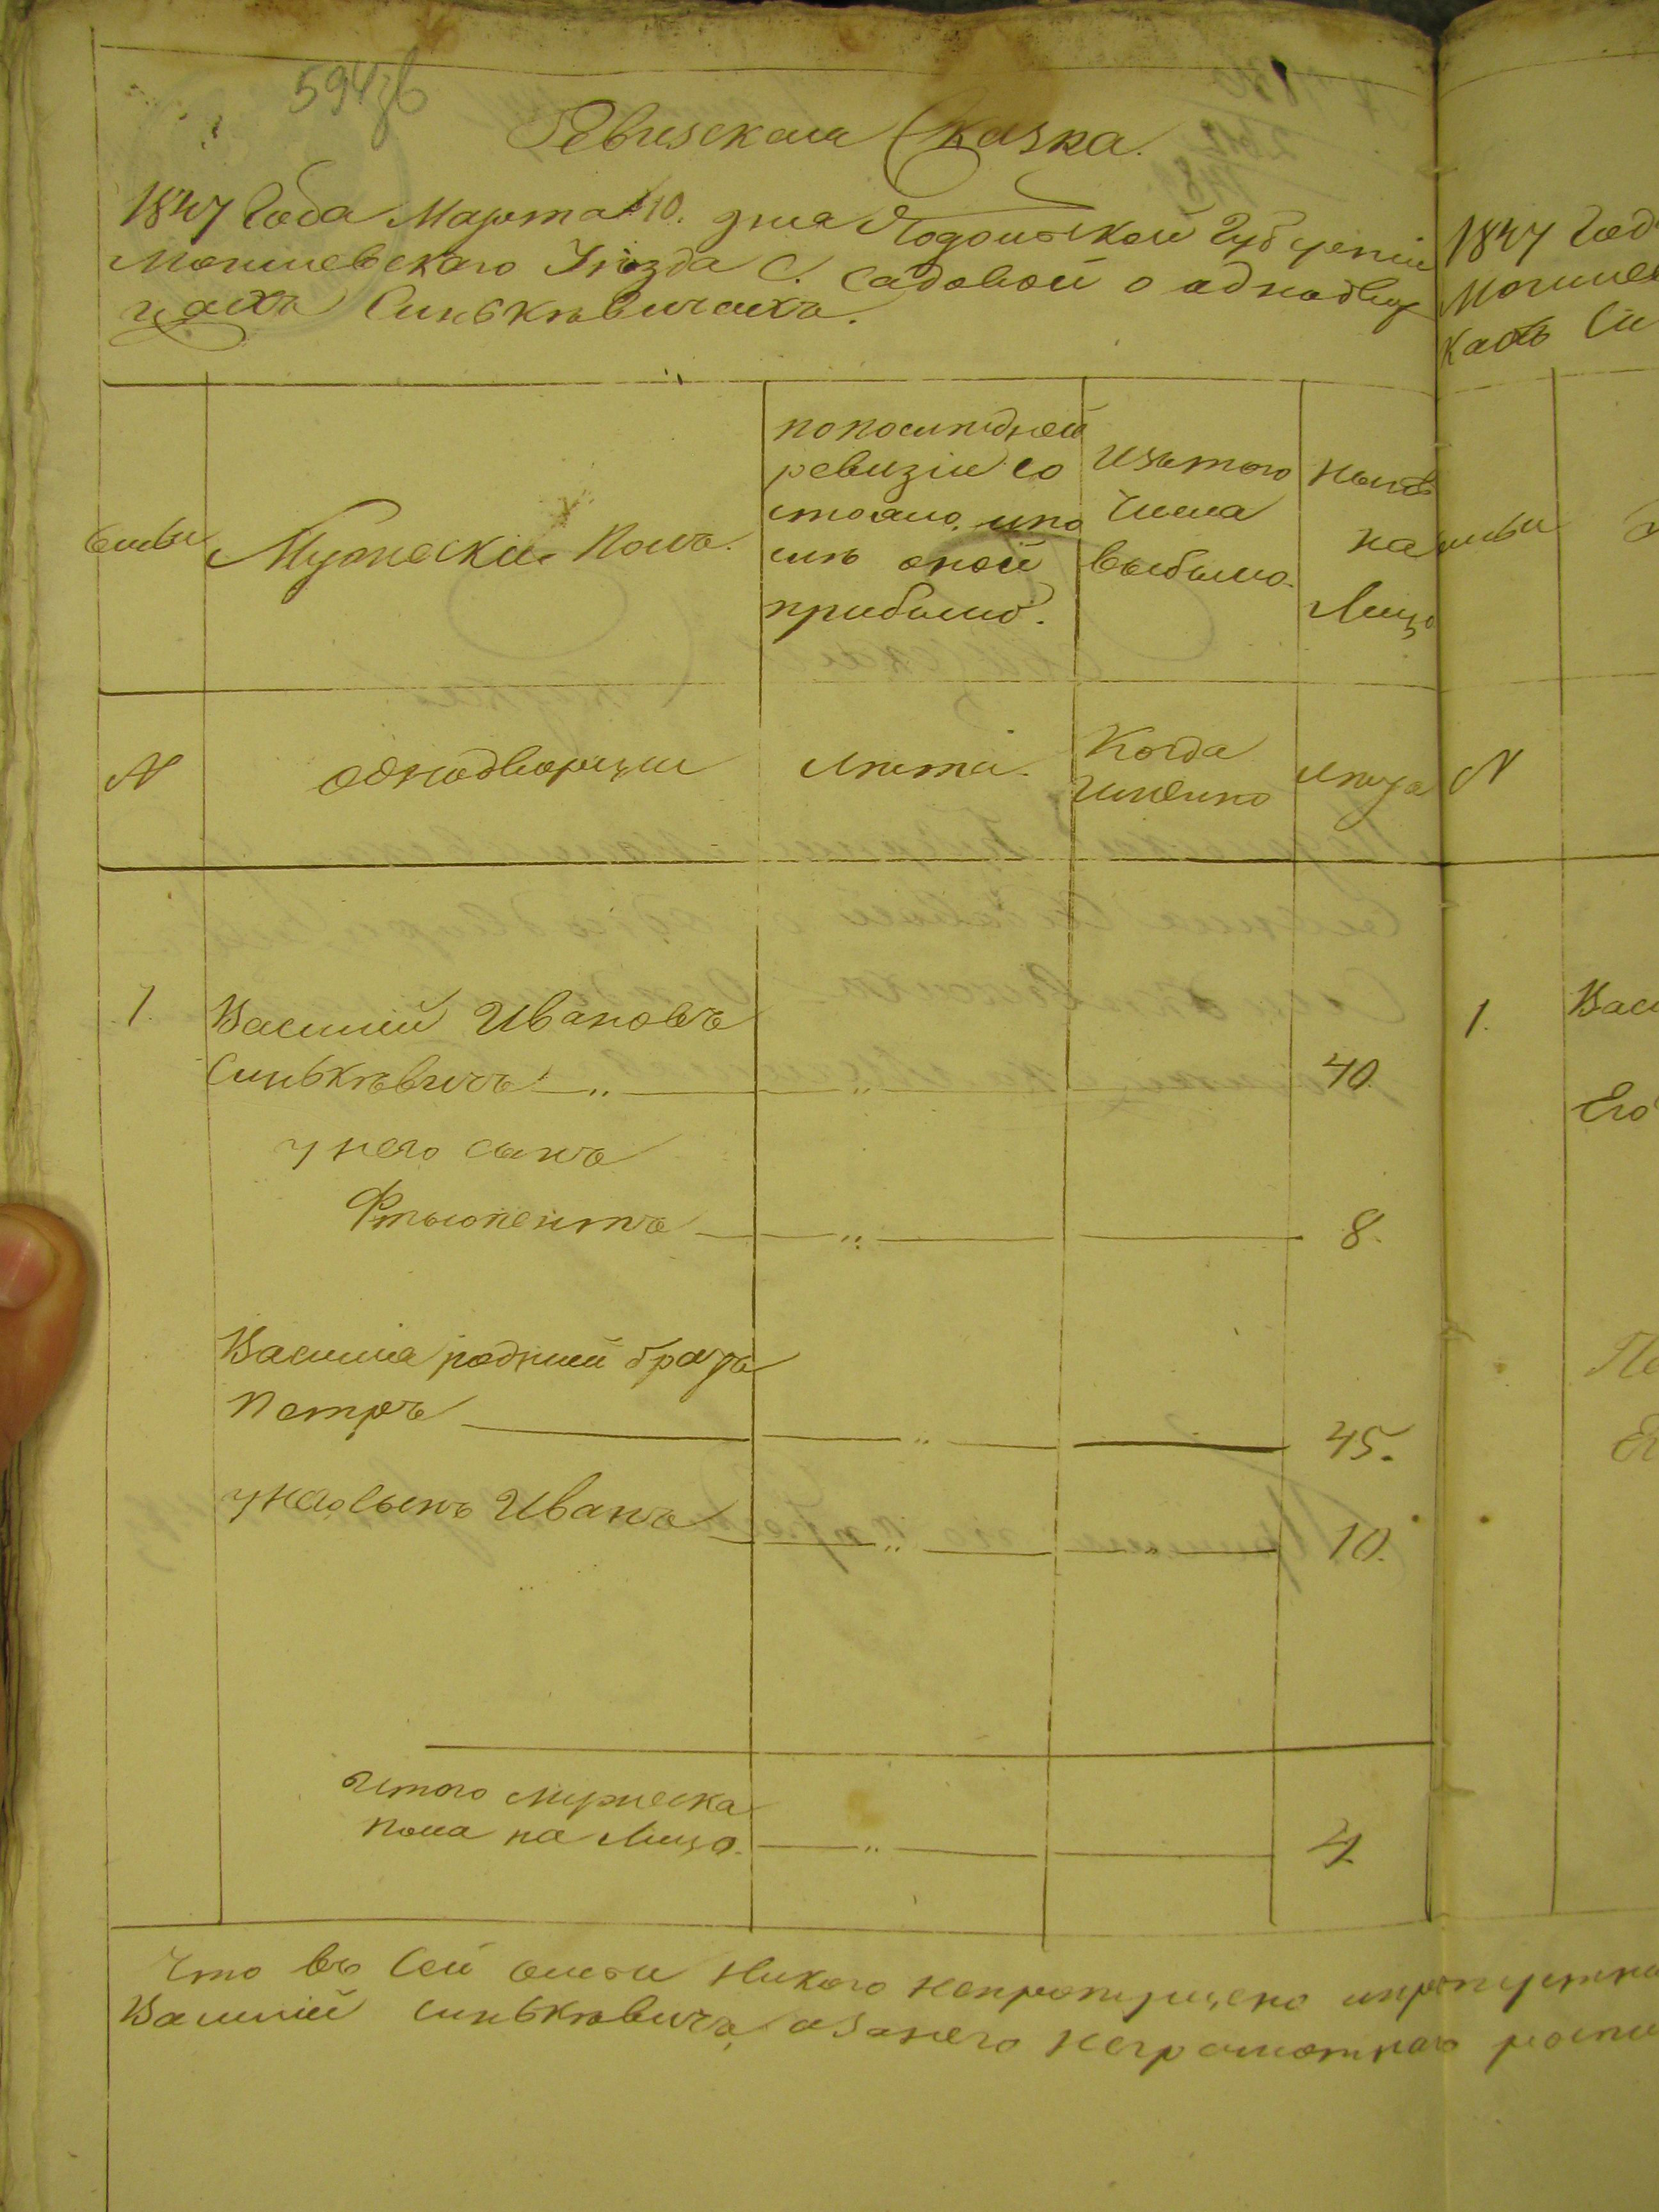 594зв
Ревизская Сказка.
1847 Года Марта 10. дня Подольской Губерніи
Могилевскаго Уѣзда С. Садовой о однодвор
цахъ Синькѣвичахъ.
Мужескій Полъ.
попослѣдней
ревизіи со
стояло, ипо
слѣ оной
прибыло.
Изътого
Числа
выбыло.
Нынѣ
на
Лицо
N
однодворцы
лѣта.
Когда
Имѣнно
лѣта
1.
Василий Ивановъ
Синькѣвичъ
40.
у него сынъ
8.
Василія родний братъ
Петръ
45.
унего Сынъ Иванъ
10.
Итого мужеска
пола на Лицо.
4.
Что въ Сей Никого непропущено
Василий Синькѣвичъ, азанего неграмотнаго
1847 Год
N
1.
Васи
Его